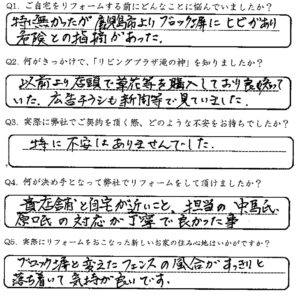 Q1. ご自宅をリフォームする前にどんなことに悩んでいましたか？
特に無かったが鹿児島市よりブロック塀にヒビがあり
危険との指摘があった.
Q2. 何がきっかけで、「リビングプラザ滝の神」を知りましたか？
以前より店頭で草花等を購入しており良く知って
いた. 広告チラシも新聞等で見ていました.
Q3. 実際に弊社でご契約を頂く際、どのような不安をお持ちでしたか？
特に不安はありませんでした.
Q4. 何が決め手となって弊社でリフォームをして頂けましたか？
貴店舗と自宅が近いこと、担当の中馬氏
原口氏の対応が丁寧で良かった事
Q5. 実際にリフォームをおこなった新しいお家の住み心地はいかがですか？
ブロック塀と変えたフェンスの風合がすっきりと
落ち着いて気持が良いです.